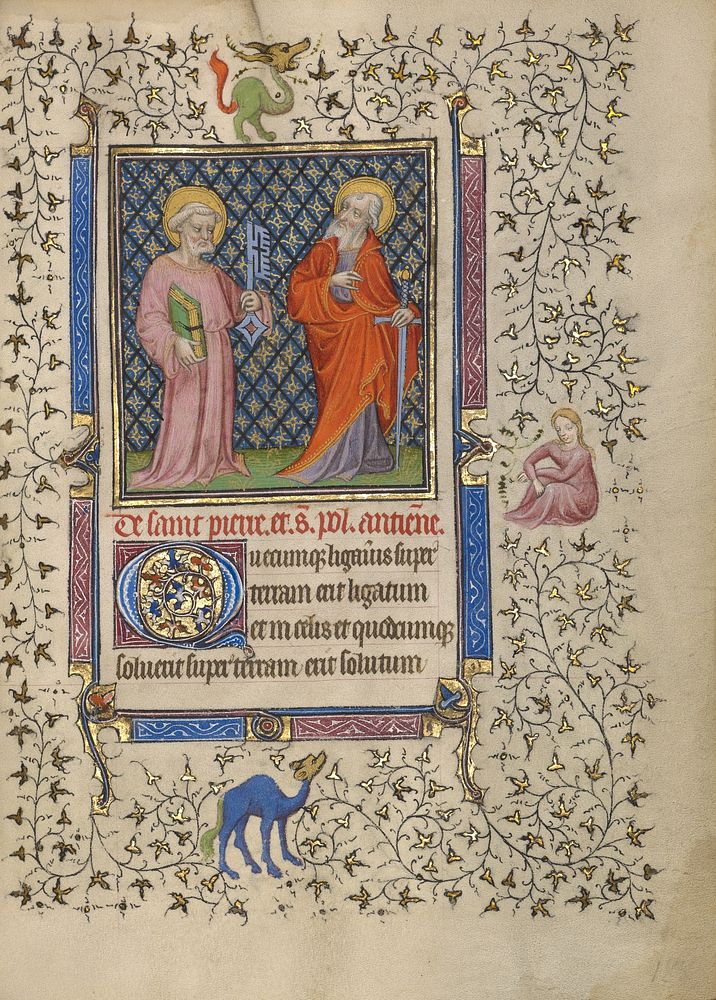 De saint pierre. et. s̄. pol. antiēne.
Quecumq; ligaūis super
terram erit ligatum
et in celis et quodcumq;
soluerit super terram erit solutum